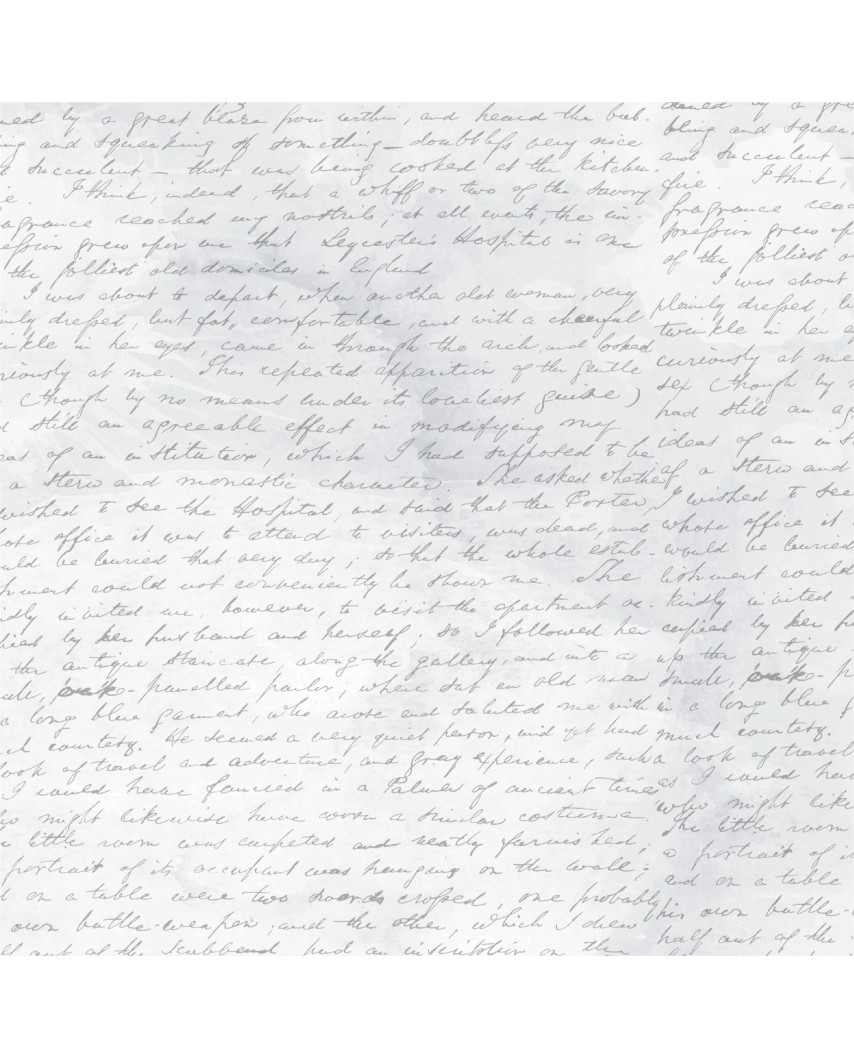 ned by a great blaze from within, and heard the bub- oened by a gre
ing and squeaking of something — doubtless very nice bling and squea
d succulent — that was being cooked at the kitchen- and succulent —
e. I think, indeed, that a whiff or two of the savory fire. I think,
agrance reached my nostrils; at all events, the im- fragrance reac
pression grew upon me that Leycester's Hospital is one pression grew up
the jolliest old domiciles in England of the jolliest o
I was about to depart, when another old woman, very I was about
inly dressed, but fat, comfortable, and with a cheerful plainly dressed, b
inkle in her eyes, came in through the arch, and looked twinkle in her e
riously at me. This repeated apparition of the gentle curiously at me
(though by no means under its loveliest guise) sex (though by n
d still an agreeable effect in modifying my had still an ag
eas of an institution, which I had supposed to be ideas of an in st
a stern and monastic character. She asked whether of a stern and
wished to see the Hospital, and said that the Porter, I wished to see
ose office it was to attend to visitors, was dead, and whose office it
uld be buried that very day; so that the whole estab- would be buried
hment could not conveniently be shown me. She lishment could
indly invited me, however, to visit the apartment oc- kindly invited
pied by her husband and herself; so I followed her cupied by her h
the antique staircase, along the gallery, and into a up the antique
all, oak-panelled parlor, where sat an old man small, oak-p
a long blue garment, who arose and saluted me with in a long blue g
ch courtesy. He seemed a very quiet person, and yet had much courtesy.
look of travel and adventure, and gray experience, such a look of travel
I could have fancied in a Palmer of ancient times as I could hav
ho might likewise have worn a similar costume. who might like
e little room was carpeted and neatly furnished; The little room
portrait of its occupant was hanging on the wall; a portrait of it
d on a table were two swords crossed, one probably and on a table
own battle-weapon, and the other, which I drew his own battle-
lf out of the scabbard had an inscription on the half out of the